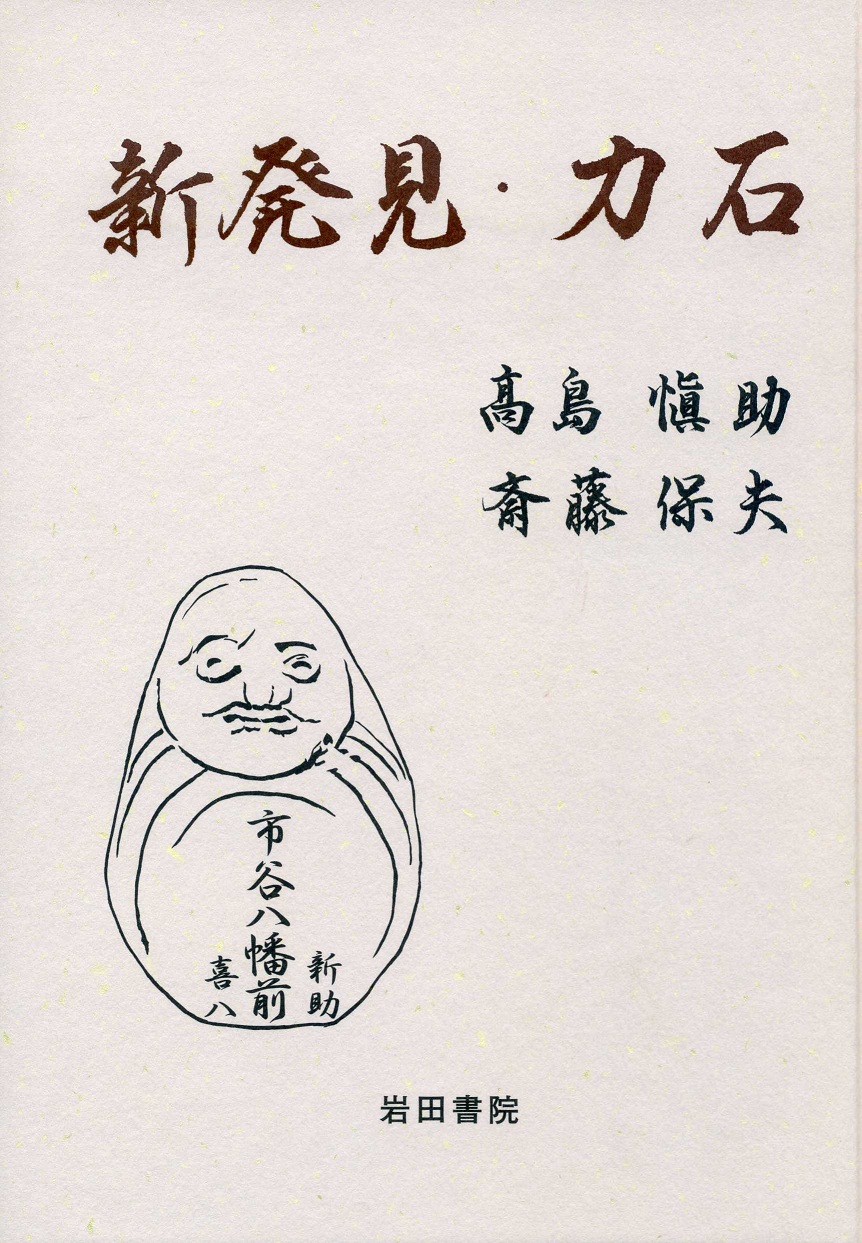 新発見・力石
高島 愼助
斎藤 保夫
市谷八幡前
新助
喜八
岩田書院